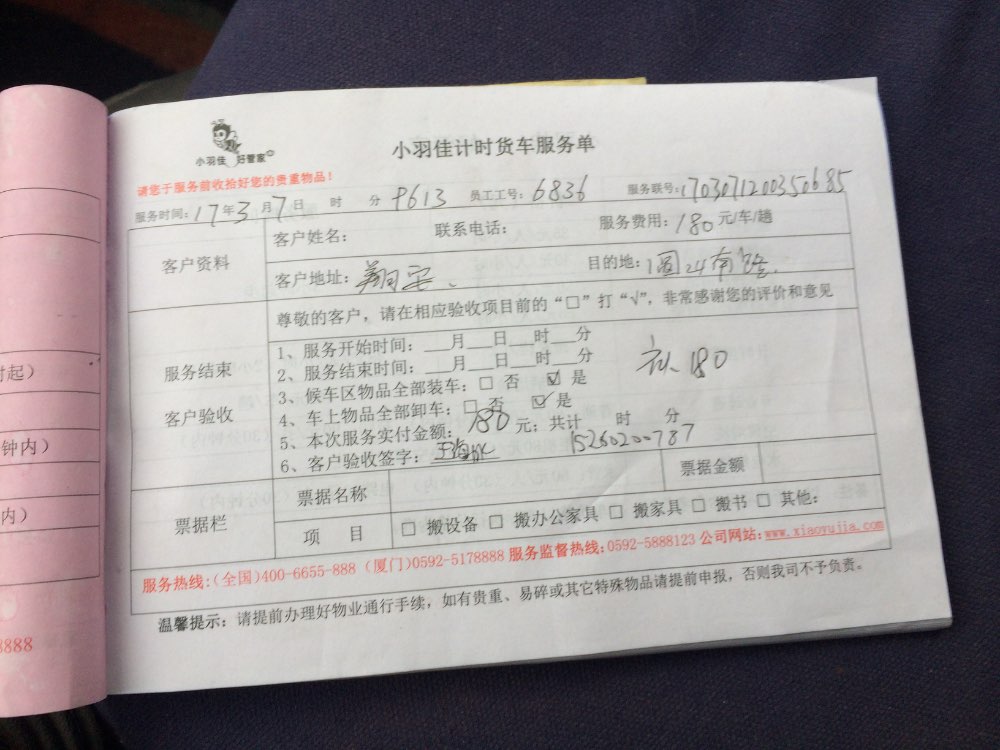 小羽佳 好管家
小羽佳计时货车服务单
请您于服务前收拾好您的贵重物品！
服务时间：17年3月7日 时 分 9613 员工工号：6836 服务联号：1703071200350685
客户资料
客户姓名： 联系电话： 服务费用：180元/车/趟
客户地址：翔安、 目的地：
尊敬的客户，请在相应验收项目前的“□”打“√”，非常感谢您的评价和意见
服务结束
客户验收
1、服务开始时间：___月___日___时___分
2、服务结束时间：___月___日___时___分
3、候车区物品全部装车：□ 否 ☑ 是
4、车上物品全部卸车：□ 否 ☑ 是
5、本次服务实付金额：180元；共计 时 分
6、客户验收签字： 15260200787
180
票据栏
票据名称
票据金额
项 目
□ 搬设备 □ 搬办公家具 □ 搬家具 □ 搬书 □ 其他：
服务热线:(全国)400-6655-888 (厦门)0592-5178888 服务监督热线:0592-5888123 公司网站:www.xiaoyujia.com
温馨提示：请提前办理好物业通行手续，如有贵重、易碎或其它特殊物品请提前申报，否则我司不予负责。
时起）
钟内）
内）
8888